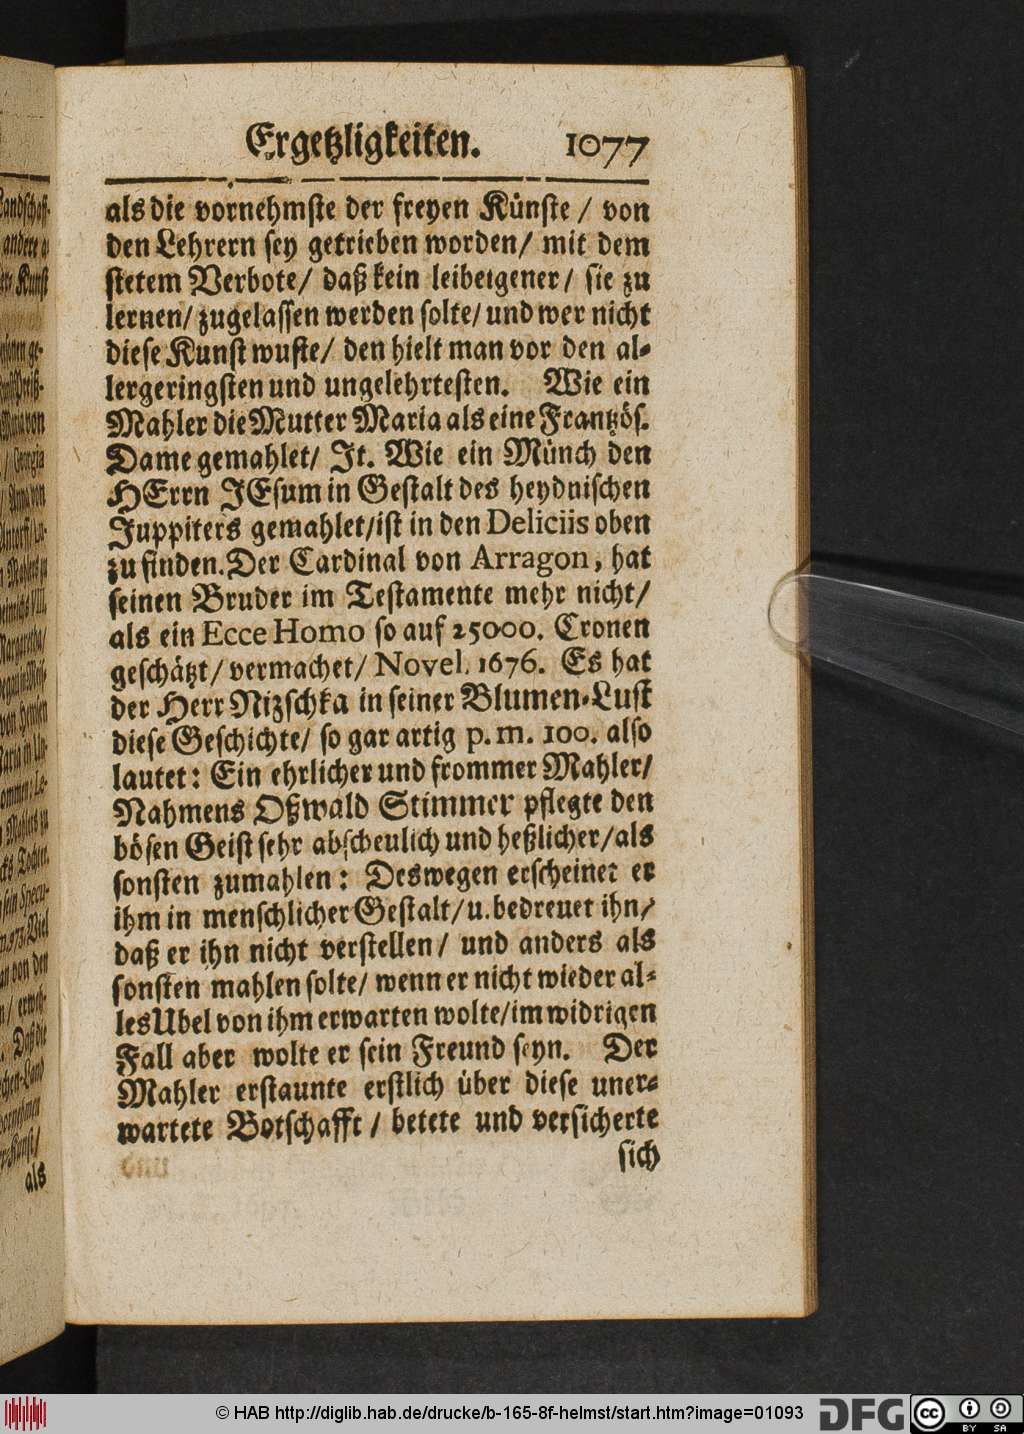 Ergetzligkeiten. 1077
als die vornehmste der freyen Künste / von
den Lehrern sey getrieben worden/ mit dem
stetem Verbote/ daß kein leibeigener/ sie zu
lernen/ zugelassen werden solte/ und wer nicht
diese Kunst wuste/ den hielt man vor den al-
lergeringsten und ungelehrtesten. Wie ein
Mahler die Mutter Maria als eine Frantzös.
Dame gemahlet/ It. Wie ein Münch den
HErrn JEsum in Gestalt des heydnischen
Juppiters gemahlet/ist in den Deliciis oben
zu finden. Der Cardinal von Arragon, hat
seinen Bruder im Testamente mehr nicht/
als ein Ecce Homo so auf 25000. Cronen
geschätzt/ vermachet/ Novel. 1676. Es hat
der Herr Nizschka in seiner Blumen-Lust
diese Geschichte/ so gar artig p. m. 100. also
lautet: Ein ehrlicher und frommer Mahler/
Nahmens Oßwald Stimmer pflegte den
bösen Geist sehr abscheulich und heßlicher/als
sonsten zumahlen: Deswegen erscheinet er
ihm in menschlicher Gestalt/ u. bedreuet ihn/
daß er ihn nicht verstellen/ und anders als
sonsten mahlen solte/ wenn er nicht wieder al-
les Ubel von ihm erwarten wolte/im widrigen
Fall aber wolte er sein Freund seyn. Der
Mahler erstaunte erstlich über diese uner-
wartete Botschafft / betete und versicherte
sich
als
© HAB http://diglib.hab.de/drucke/b-165-8f-helmst/start.htm?image=01093 DFG CC BY SA